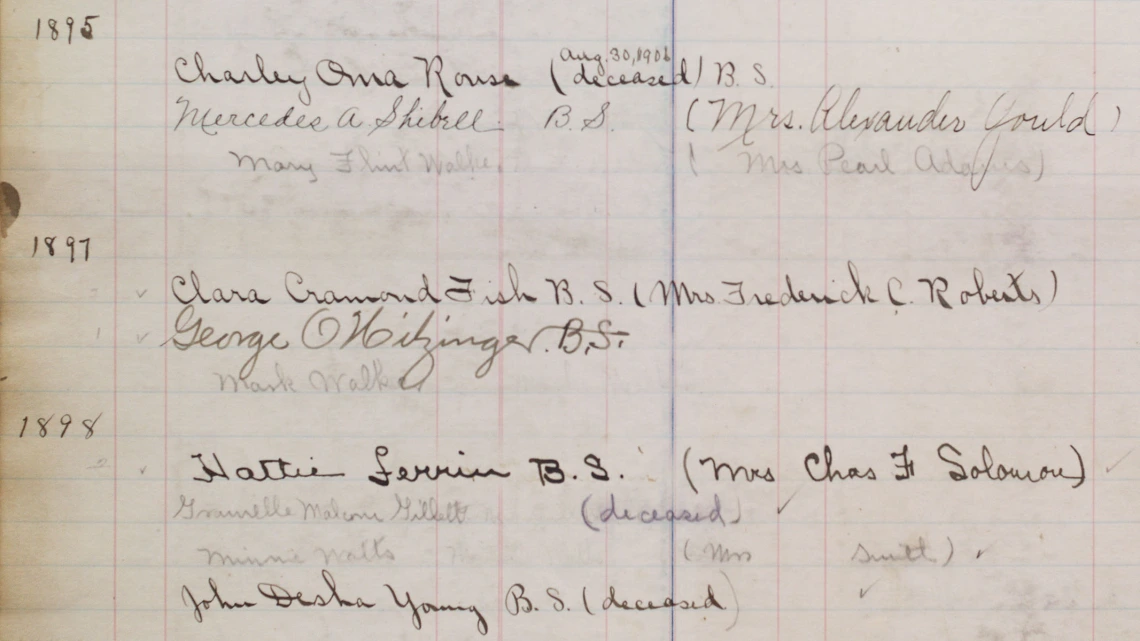 1895
Aug. 30, 1906
Charley Oma Rouse (deceased) B. S.
Mercedes A Shibell B. S. (Mrs. Alexander Gould)
Mary Flint Walker (Mrs Pearl Adams)
1897
Clara Cramond Fish B. S. (Mrs. Frederick C. Roberts)
George O Hitzinger. B.S.
Mark Walker
1898
Hattie Ferrin B. S. (Mrs Chas F Solomon)
Malcom Gillett (deceased)
Minnie Watts (Mrs Smith)
John Desha Young B. S. (deceased)